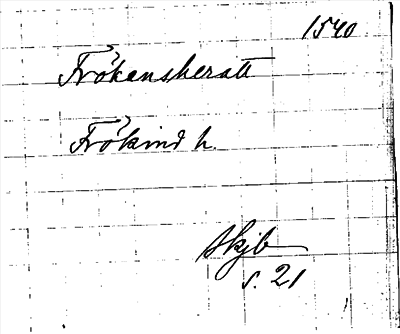 1540
Frökensheratt
Frökind h.
Skjb
s. 21